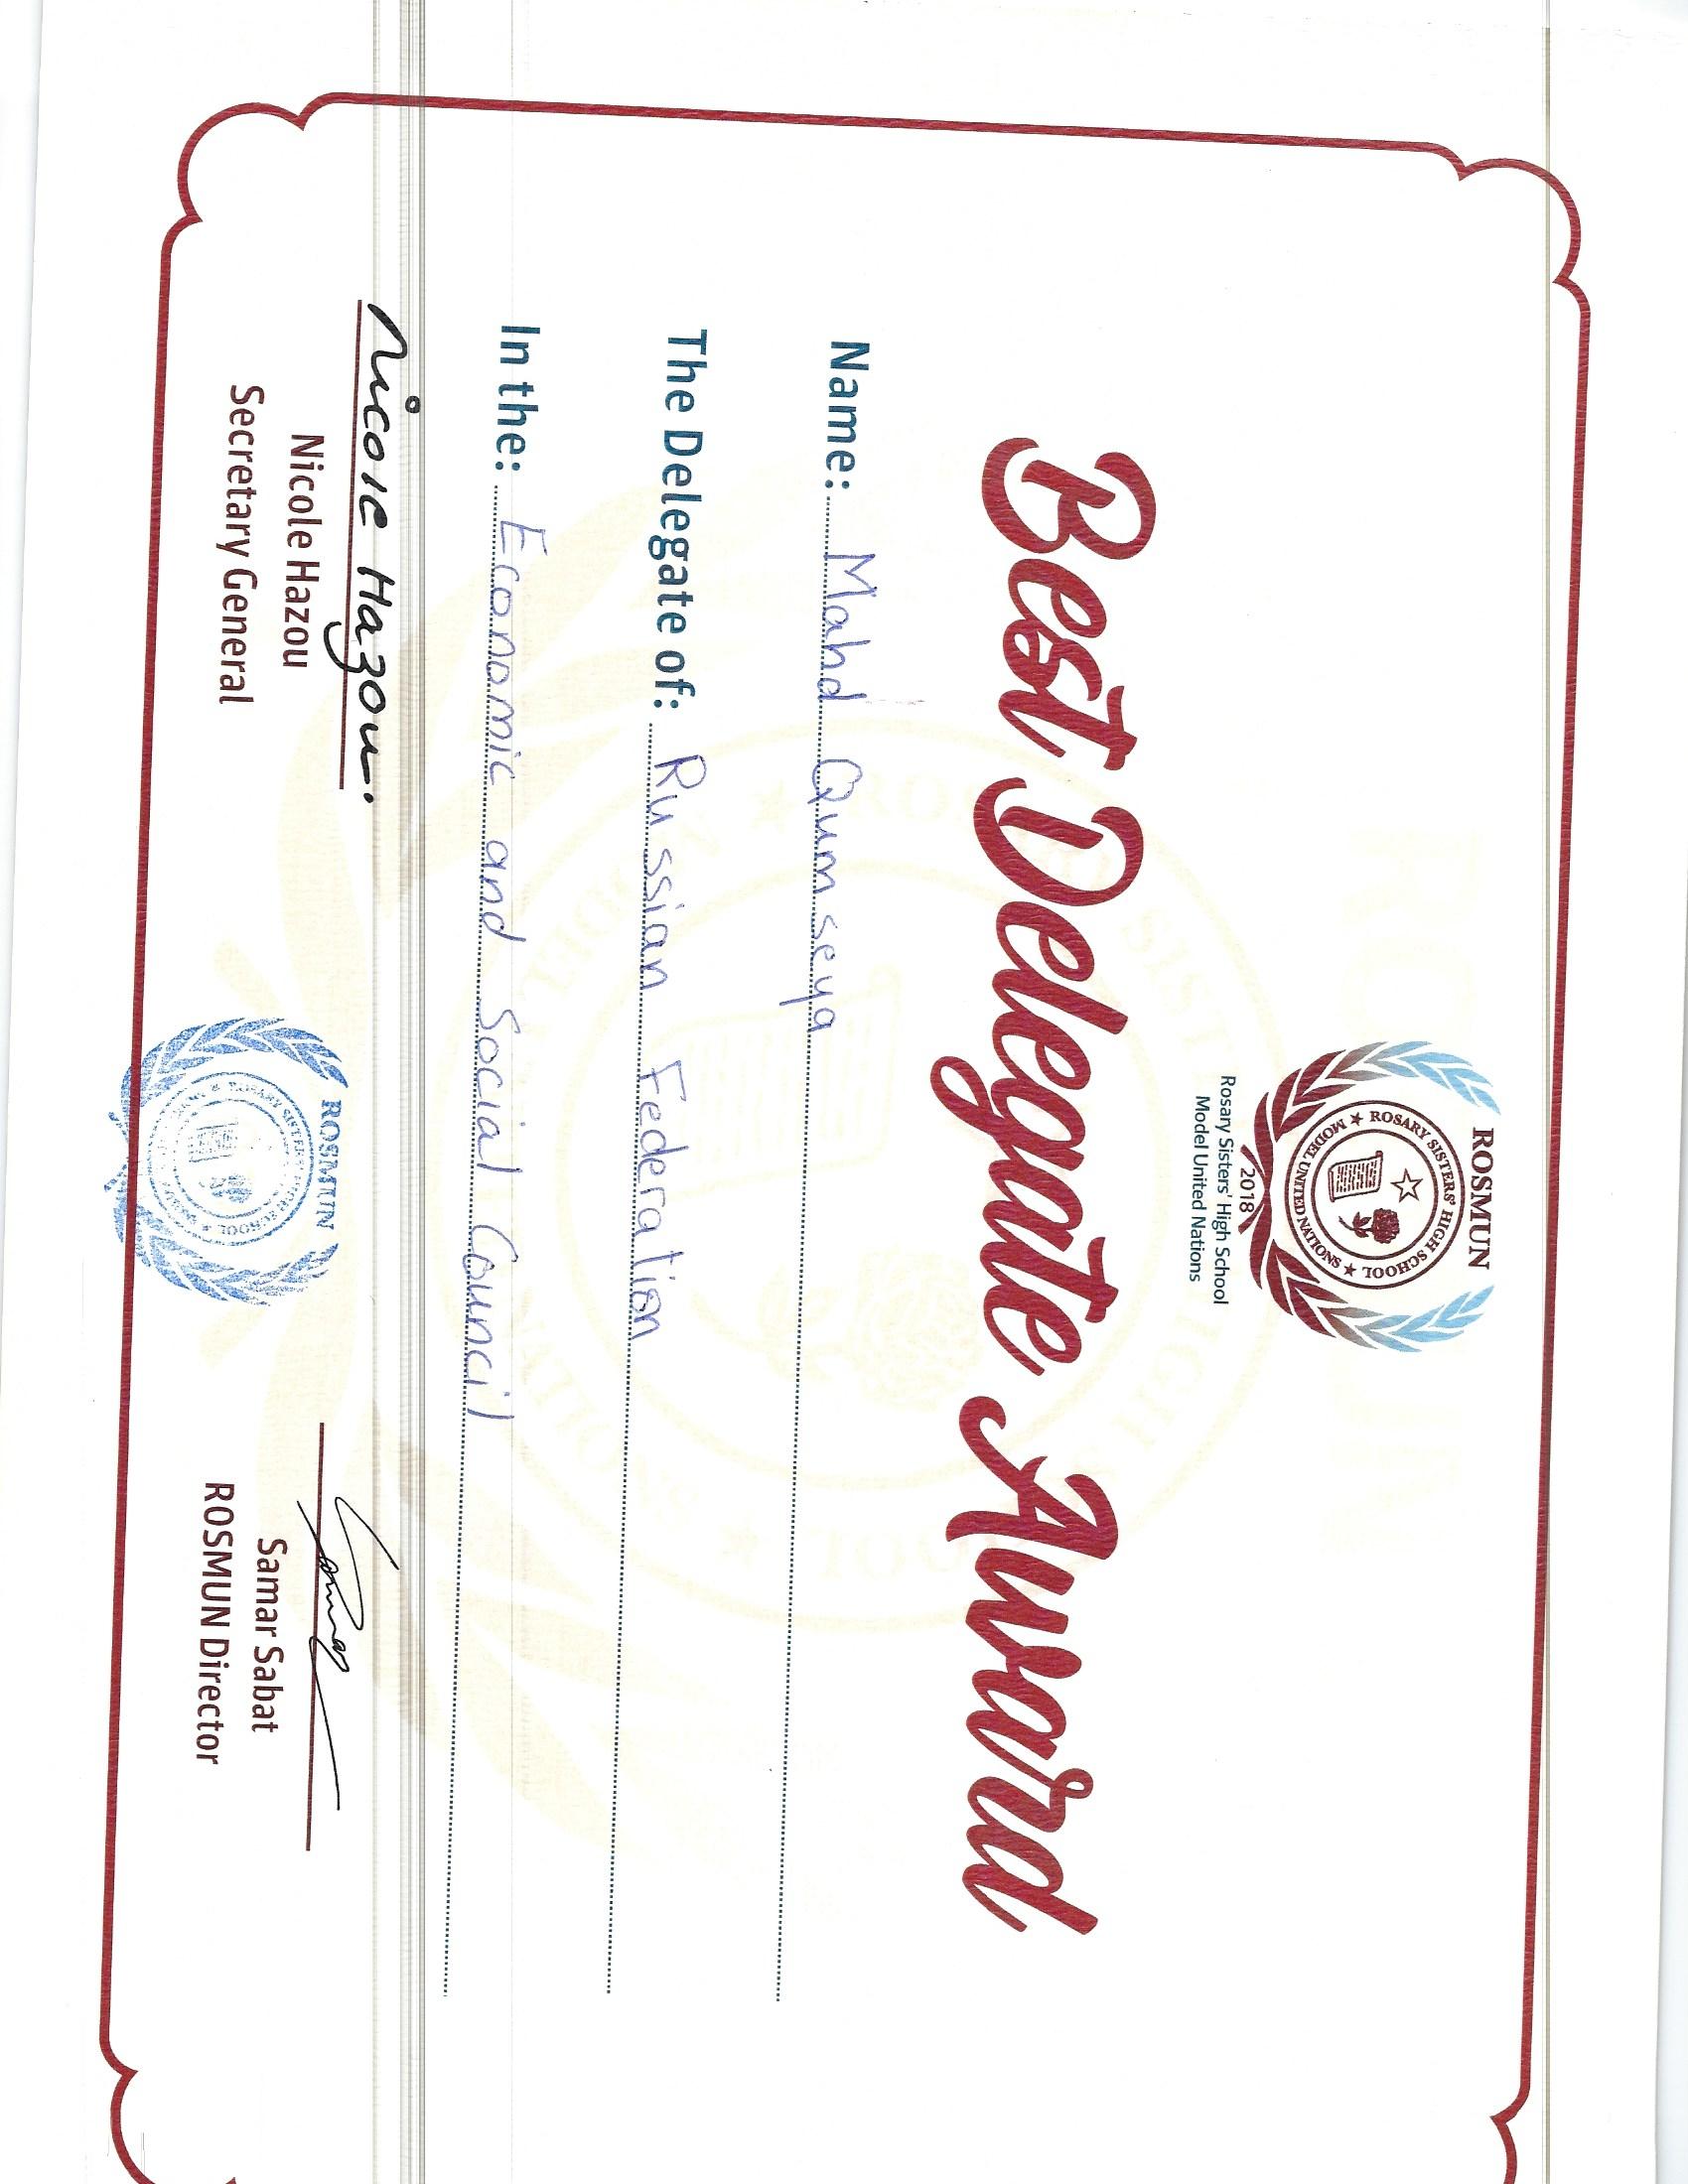 ROSMUN
★ ROSARY SISTERS' HIGH SCHOOL ★ MODEL UNITED NATIONS
2018
Rosary Sisters' High School
Model United Nations
Best Delegate Award
Name: Mahd Qumseya
The Delegate of: Russian Federation
In the: Economic and Social Council
Nicole Hazou.
Nicole Hazou
Secretary General
ROSMUN
Samar Sabat
ROSMUN Director